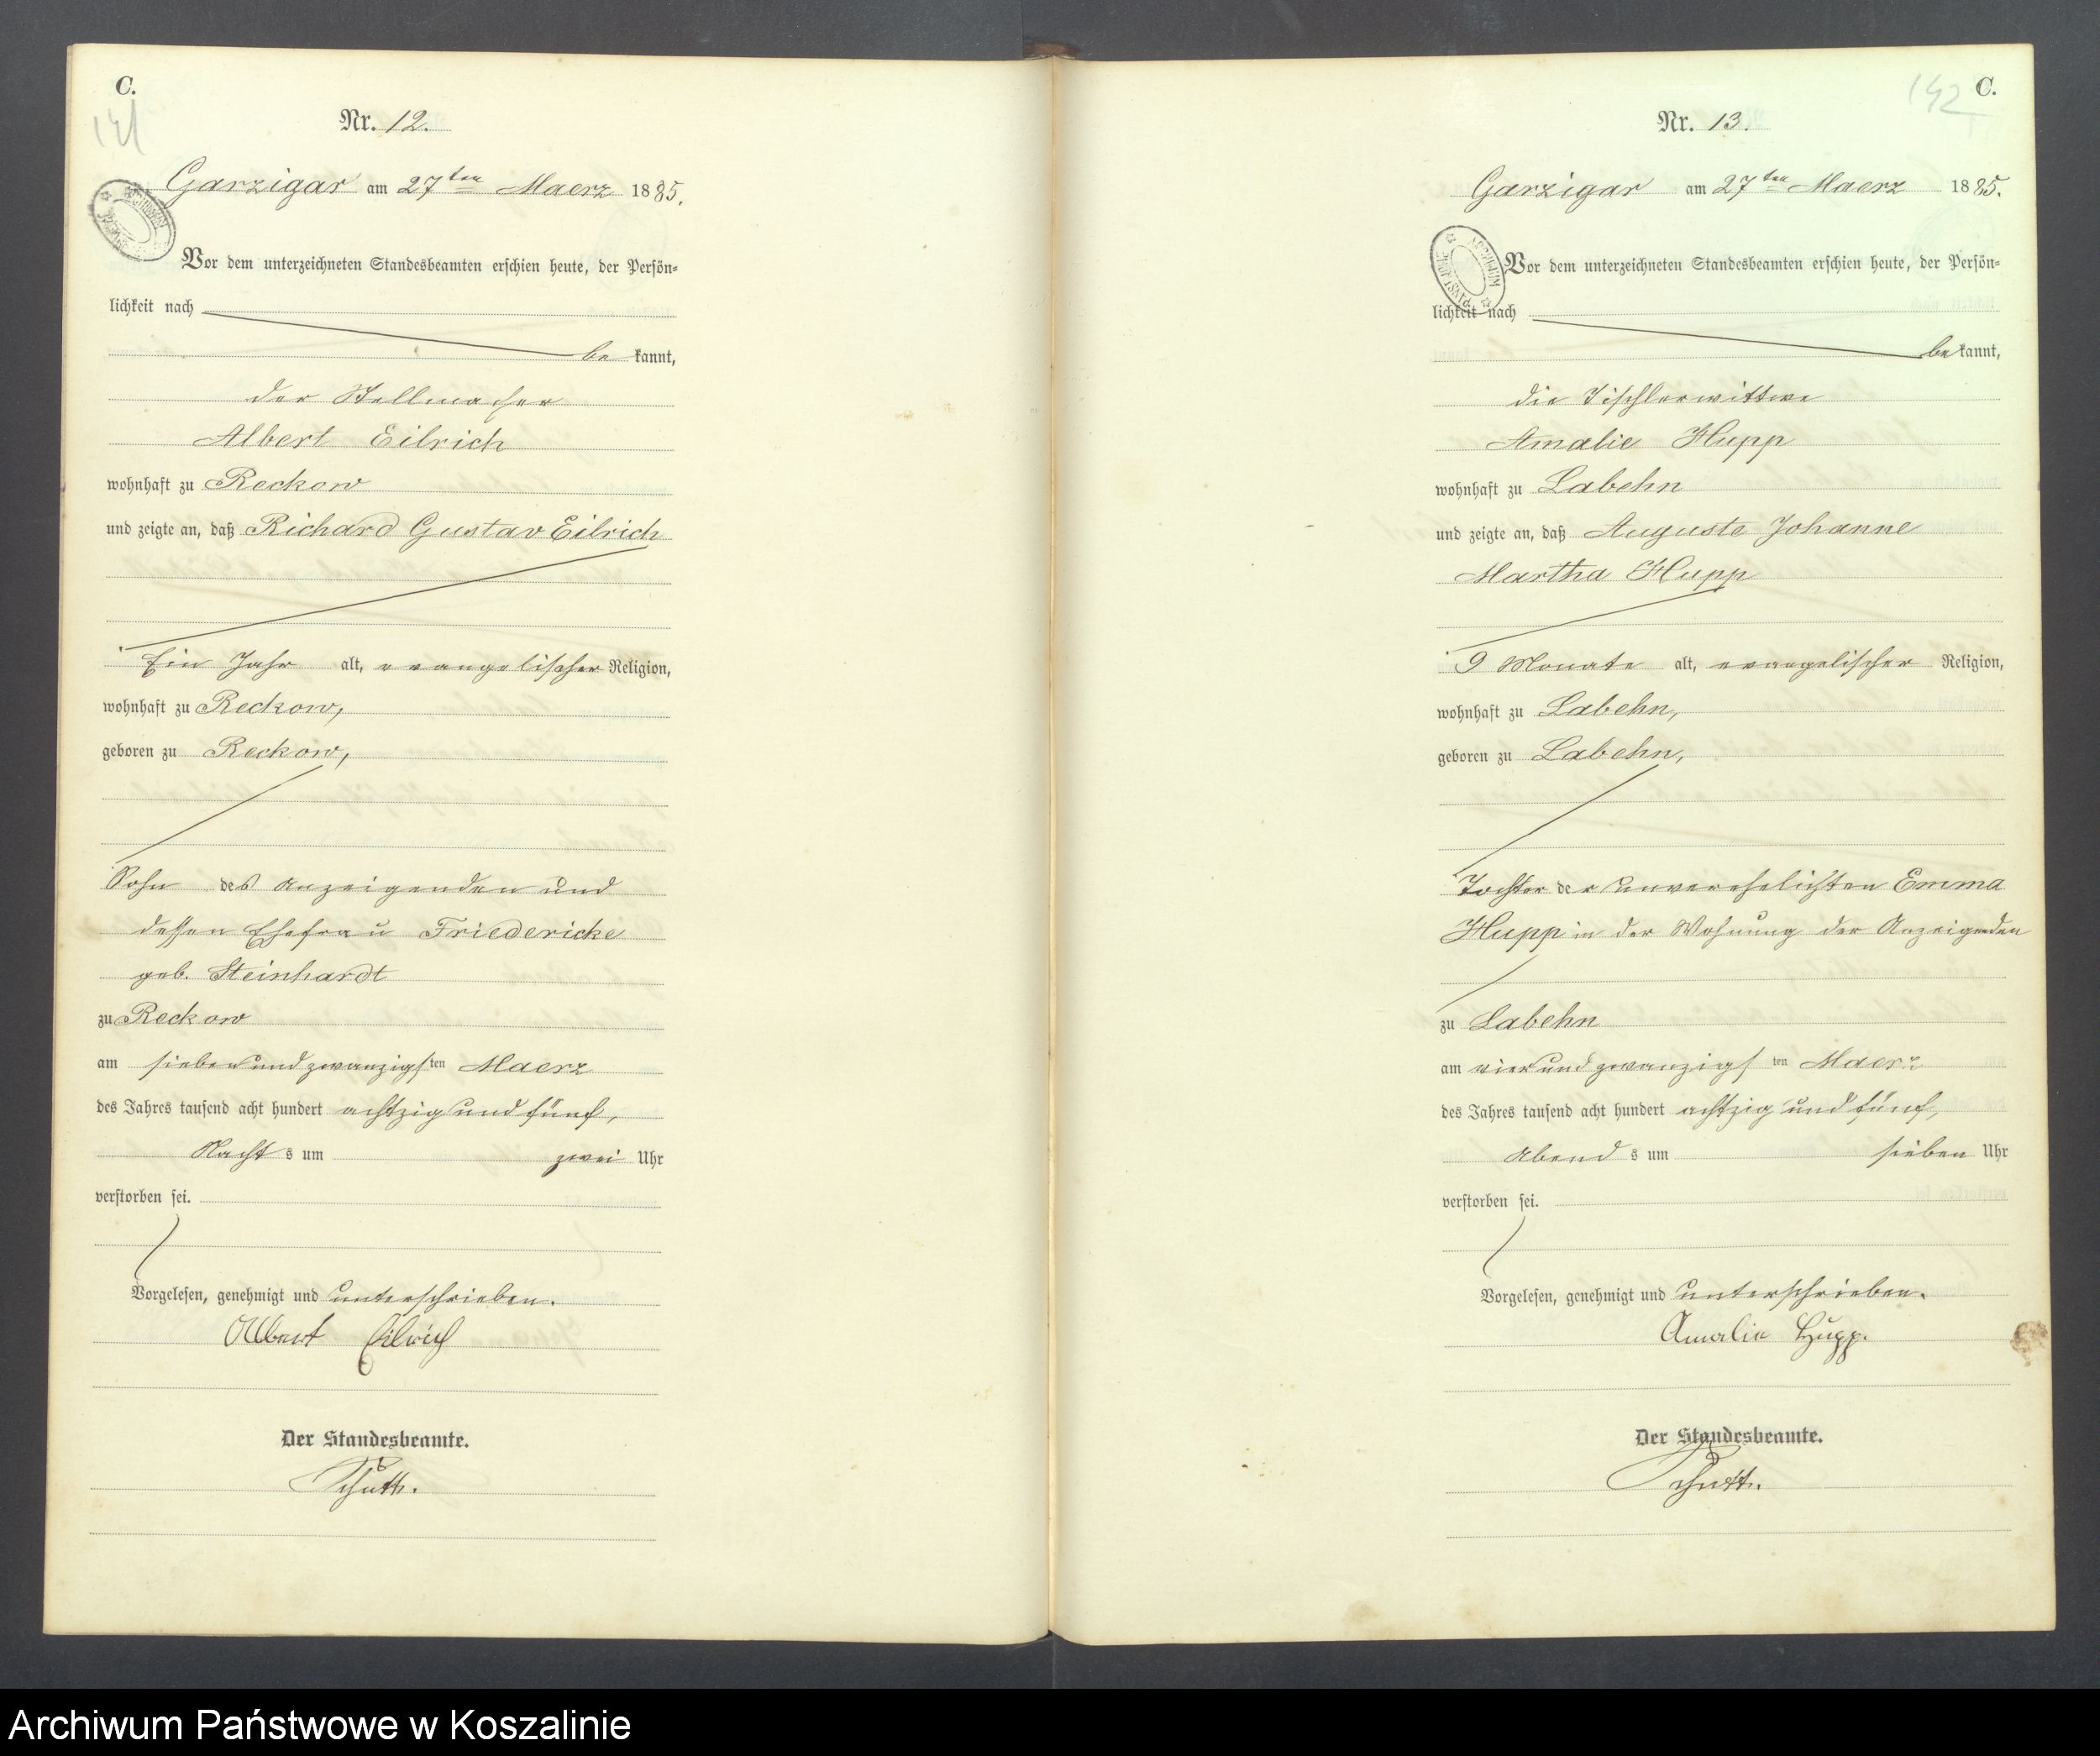 C.
141
Nr. 12.
Garzigar am 27ten Maerz 1885.
Vor dem unterzeichneten Standesbeamten erschien heute, der Persön-
lichkeit nach
be kannt,
der Stellmacher
Albert Eilrich
wohnhaft zu Reckow
und zeigte an, daß Richard Gustav Eilrich
Ein Jahr alt, evangelischer Religion,
wohnhaft zu Reckow,
geboren zu Reckow,
Sohn des Anzeigenden und
dessen Ehefrau Friedericke
geb. Steinhardt
zu Reckow
am siebenundzwanzigsten Maerz
des Jahres tausend acht hundert achtzig und fünf,
Nachts um zwei Uhr
verstorben sei.
Vorgelesen, genehmigt und unterschrieben.
Albert Eilrich
Der Standesbeamte.
Schütt.
C.
142
Nr. 13.
Garzigar am 27ten Maerz 1885.
Vor dem unterzeichneten Standesbeamten erschien heute, der Persön-
lichkeit nach
be kannt,
die Tischlerwittwe
Amalie Hupp
wohnhaft zu Labehn
und zeigte an, daß Auguste Johanne
Martha Hupp
9 Monate alt, evangelischer Religion,
wohnhaft zu Labehn,
geboren zu Labehn,
Tochter der unverehelichten Emma
Hupp in der Wohnung der Anzeigenden
zu Labehn
am vierundzwanzigsten Maerz
des Jahres tausend acht hundert achtzig und fünf,
Abends um sieben Uhr
verstorben sei.
Vorgelesen, genehmigt und unterschrieben.
Amalie Hupp.
Der Standesbeamte.
Schütt.
Archiwum Państwowe w Koszalinie